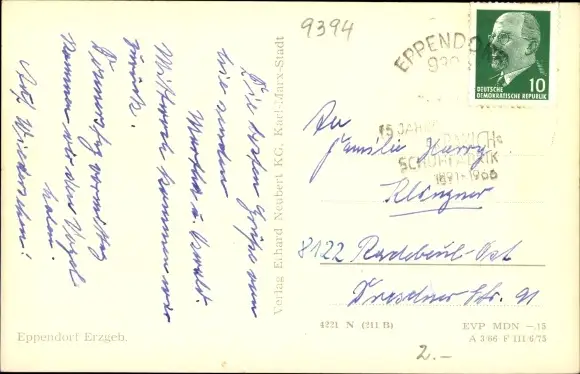 9394
EPPENDORF
DEUTSCHE
DEMOKRATISCHE REPUBLIK
10
75 JAHRE
SCHUHFABRIK
1891-1966
Die besten Grüße von
hie senden
Martha u. Oswald.
Mittwoch kommen wir
zurück.
Donnerstag vormittag
kommen wir den Vogel
holen.
Auf Wiedersehn!
Verlag Erhard Neubert KG, Karl-Marx-Stadt
An
Familie Harry
Klingner
8122 Radebeul-Ost
Dresdner Str. 91
Eppendorf Erzgeb.
4221 N (211 B)
EVP MDN -.15
A 3/66 F 111/6/75
2.-